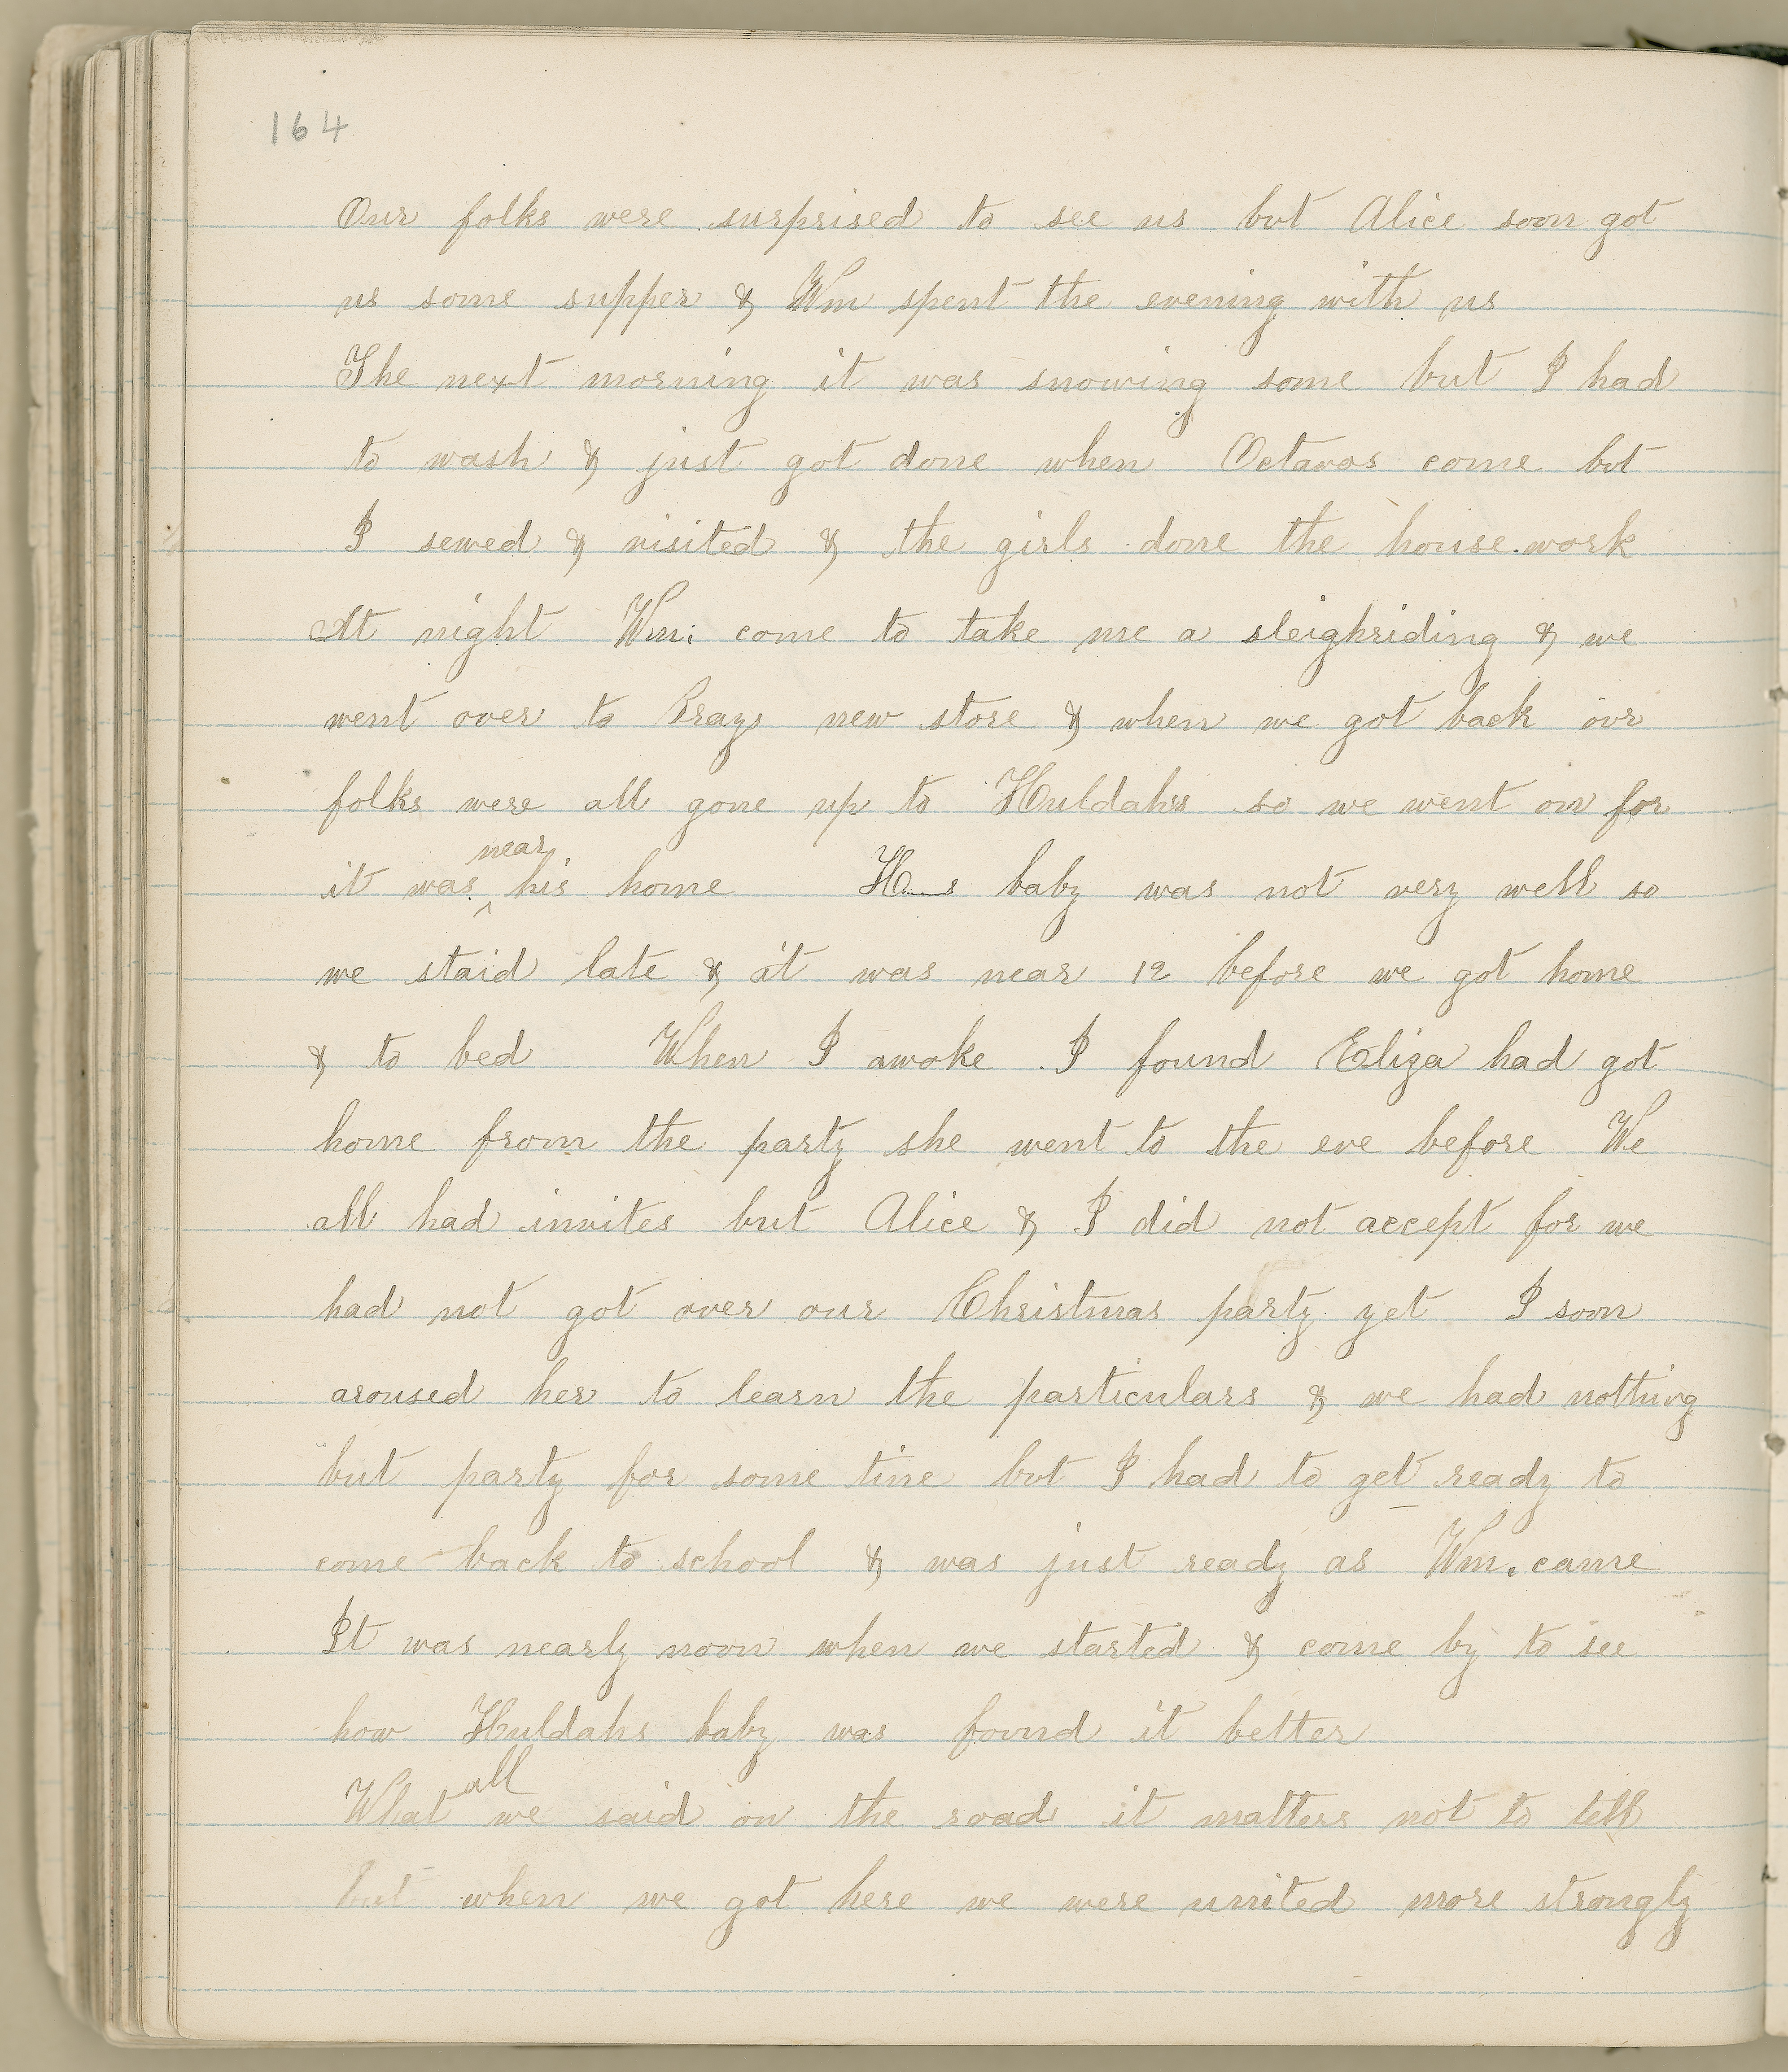 164
Our folks were surprised to see us but Alice soon got
us some supper & Wm spent the evening with us
The next morning it was snowing some but I had
to wash & just got done when Octavos come but
I sewed & visited & the girls done the house work
At night Wm: come to take me a sleighriding & we
went over to Brays new store & when we got back our
folks were all gone up to Huldahs so we went on for
near
it was ^ his home H—s baby was not very well so
we staid late & it was near 12 before we got home
& to bed When I awoke I found Eliza had got
home from the party she went to the eve before We
all had invites but Alice & I did not accept for we
had not got over our Christmas party yet I soon
aroused her to learn the particulars & we had nothing
but party for some time but I had to get ready to
come back to school & was just ready as Wm. came
It was nearly noon when we started & come by to see
how Huldahs baby was found it better
all
What we said on the road it matters not to tell
but when we got here we were united more strongly